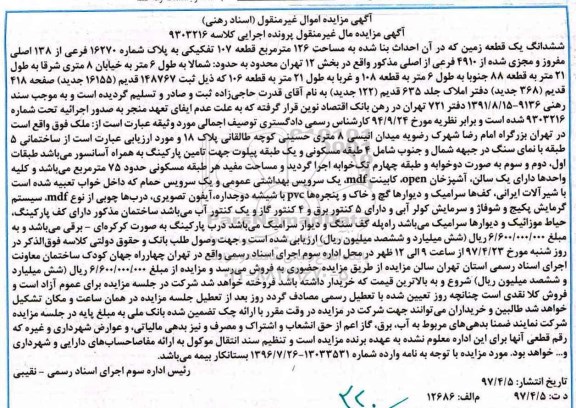 آگهی مزایده اموال غیرمنقول (اسناد رهنی)
آگهی مزایده مال غیرمنقول پرونده اجرایی کلاسه ۹۳۰۳۲۱۶
ششدانگ یک قطعه زمین که در آن احداث بنا شده به مساحت ۱۲۶ مترمربع قطعه ۱۰۷ تفکیکی به پلاک شماره ۱۶۲۷۰ فرعی از ۱۳۸ اصلی
مفروز و مجزی شده از ۴۹۱۰ فرعی از اصلی مذکور واقع در بخش ۱۲ تهران محدود به حدود: شمالا به طول ۶ متر به خیابان ۸ متری شرقا به طول
۲۱ متر به قطعه ۸۸ جنوبا به طول ۶ متر به قطعه ۱۰۸ و غربا به طول ۲۱ متر به قطعه ۱۰۶ که ذیل ثبت ۱۴۸۷۶۷ قدیم (۱۶۱۵۵ جدید) صفحه ۴۱۸
قدیم (۳۶۸ جدید) دفتر املاک جلد ۶۳۵ قدیم (۱۲۲ جدید) به نام آقای قدرت حاجی‌زاده ثبت و صادر و تسلیم گردیده است و به موجب سند
رهنی ۹۱۳۶-۱۳۹۱/۸/۱۵ دفتر ۷۲۱ تهران در رهن بانک اقتصاد نوین قرار گرفته که به علت عدم ایفای تعهد منجر به صدور اجرائیه تحت شماره
۹۳۰۳۲۱۶ شده است و برابر نظریه مورخ ۹۴/۹/۲۴ کارشناس رسمی دادگستری توصیف اجمالی مورد وثیقه عبارت است از: ملک فوق واقع است
در تهران بزرگراه امام رضا شهرک رضویه میدان انیسی ۸ متری حسینی کوچه طالقانی پلاک ۱۸ و مورد ارزیابی عبارت است از ساختمانی ۵
طبقه با نمای سنگ در جبهه شمال و جنوب شامل ۴ طبقه مسکونی و یک طبقه پیلوت جهت تامین پارکینگ به همراه آسانسور می‌باشد طبقات
اول، دوم و سوم به صورت دوخوابه و طبقه چهارم یک‌خوابه اجرا گردید و مساحت مفید هر طبقه مسکونی حدود ۷۵ مترمربع می‌باشد و کلیه
واحدها دارای یک سالن، آشپزخان open، کابینت mdf، یک سرویس بهداشتی عمومی و یک سرویس حمام که داخل خواب تعبیه شده است
با شیرآلات ایرانی، کف‌ها سرامیک و دیوارها گچ و خاک و پنجره‌ها pvc با شیشه دوجداره، آیفون تصویری، درب‌ها چوبی از نوع mdf، سیستم
گرمایش پکیج و شوفاژ و سرمایش کولر آبی و دارای ۵ کنتور برق و ۴ کنتور گاز و یک کنتور آب می‌باشد ساختمان مذکور دارای کف پارکینگ،
حیاط موزائیک و دیوارها سرامیک می‌باشد راه‌پله قله سنگ و دیوار سرامیک می‌باشد درب پارکینگ به صورت کرکره‌ای - برقی می‌باشد و به
مبلغ ۶/۶۰۰/۰۰۰/۰۰۰ ریال (شش میلیارد و ششصد میلیون ریال) ارزیابی شده است و جهت وصول طلب بانک و حقوق دولتی کلاسه فوق‌الذکر در
روز شنبه مورخ ۹۷/۴/۲۳ از ساعت ۹ الی ۱۲ ظهر در محل اداره سوم اجرای اسناد رسمی واقع در تهران چهارراه جهان کودک ساختمان معاونت
اجرای اسناد رسمی استان تهران سالن مزایده از طریق مزایده حضوری به فروش می‌رسد و مزایده از مبلغ ۶/۶۰۰/۰۰۰/۰۰۰ ریال (شش میلیارد
و ششصد میلیون ریال) شروع و به بالاترین قیمت که خریدار داشته باشد فروخته خواهد شد شرکت در جلسه مزایده برای عموم آزاد است و
فروش کلا نقدی است چنانچه روز تعیین شده با تعطیل رسمی مصادف گردد روز بعد از تعطیل جلسه مزایده در همان ساعت و مکان تشکیل
خواهد شد طالبین و خریداران می‌توانند جهت شرکت در مزایده در وقت مقرر با ارائه چک تضمین شده بانک ملی به مبلغ پایه در جلسه مزایده
شرکت نمایند ضمنا بدهی‌های مربوط به آب، برق، گاز اعم از حق انشعاب و اشتراک و مصرف و نیز بدهی مالیاتی، و عوارض شهرداری و غیره که
رقم قطعی آنها برای این اداره معلوم نشده به عهده برنده مزایده است و تنظیم سند انتقال موکول به ارائه مفاصاحساب‌های دارایی و شهرداری
و... خواهد بود. مورد مزایده با توجه به نامه وارده شماره ۱۳۰۳۳۵۳۱-۱۳۹۶/۷/۲۶ بستانکار بیمه می‌باشد.
رئیس اداره سوم اجرای اسناد رسمی - نقیبی
تاریخ انتشار: ۹۷/۴/۵
د ت: ۹۷/۴/۵ م‌الف: ۱۲۶۸۶